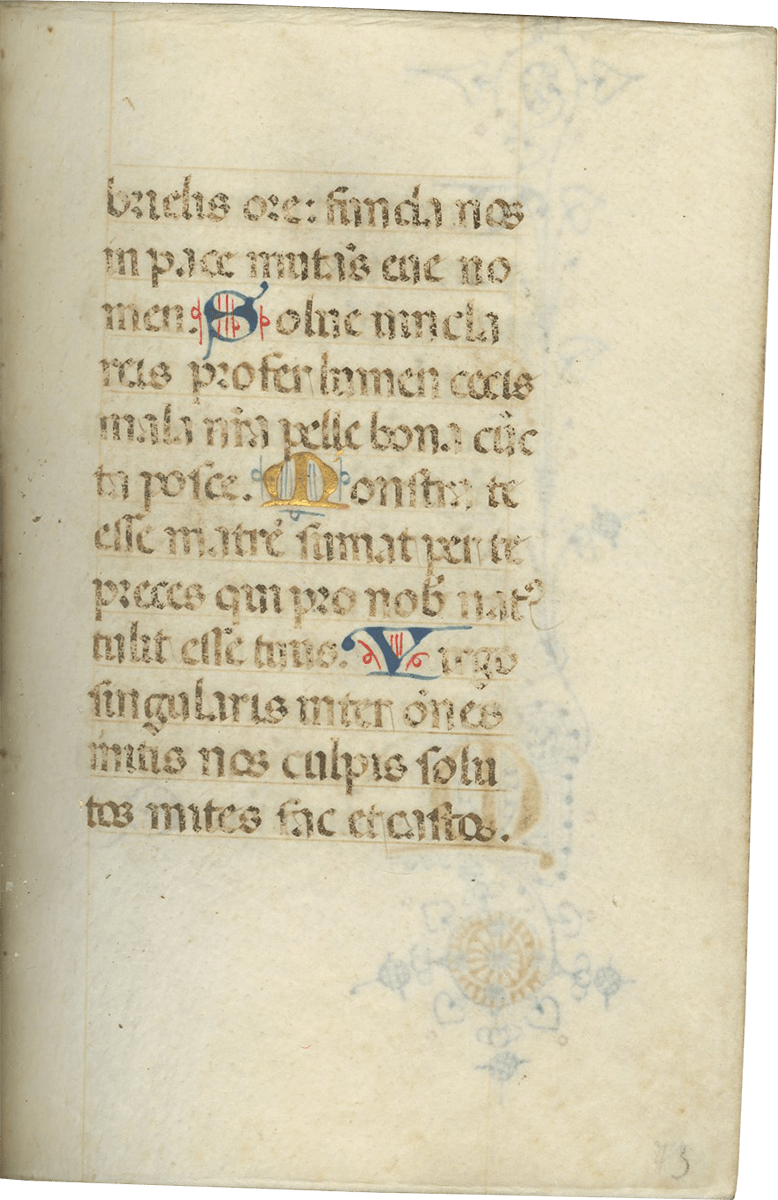 brielis ore: funda nos
in pace mutãs eue no
men. Solue uincla
reis profer lumen cecis
mala nr̃a pelle bona cũc
ta posce. Monstra te
esse matrẽ sumat per te
preces qui pro nob̃ nat⁹
tulit esse tuus. Virgo
singularis inter õnes
mitis nos culpis solu
tos mites fac et castos.
73